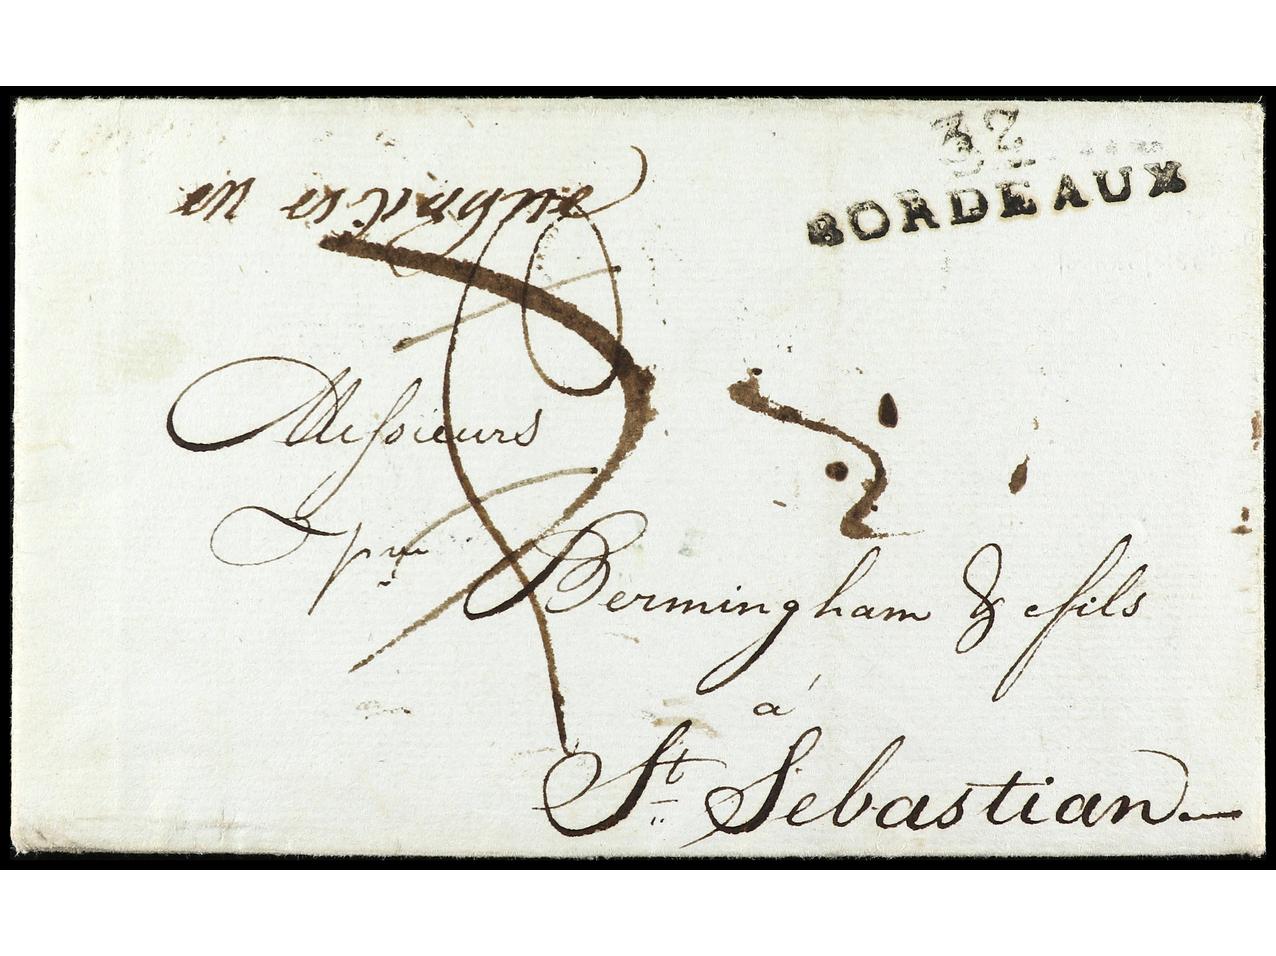 32
BORDEAUX
en espagne
Messieurs
Bermingham & fils
à
St Sebastian